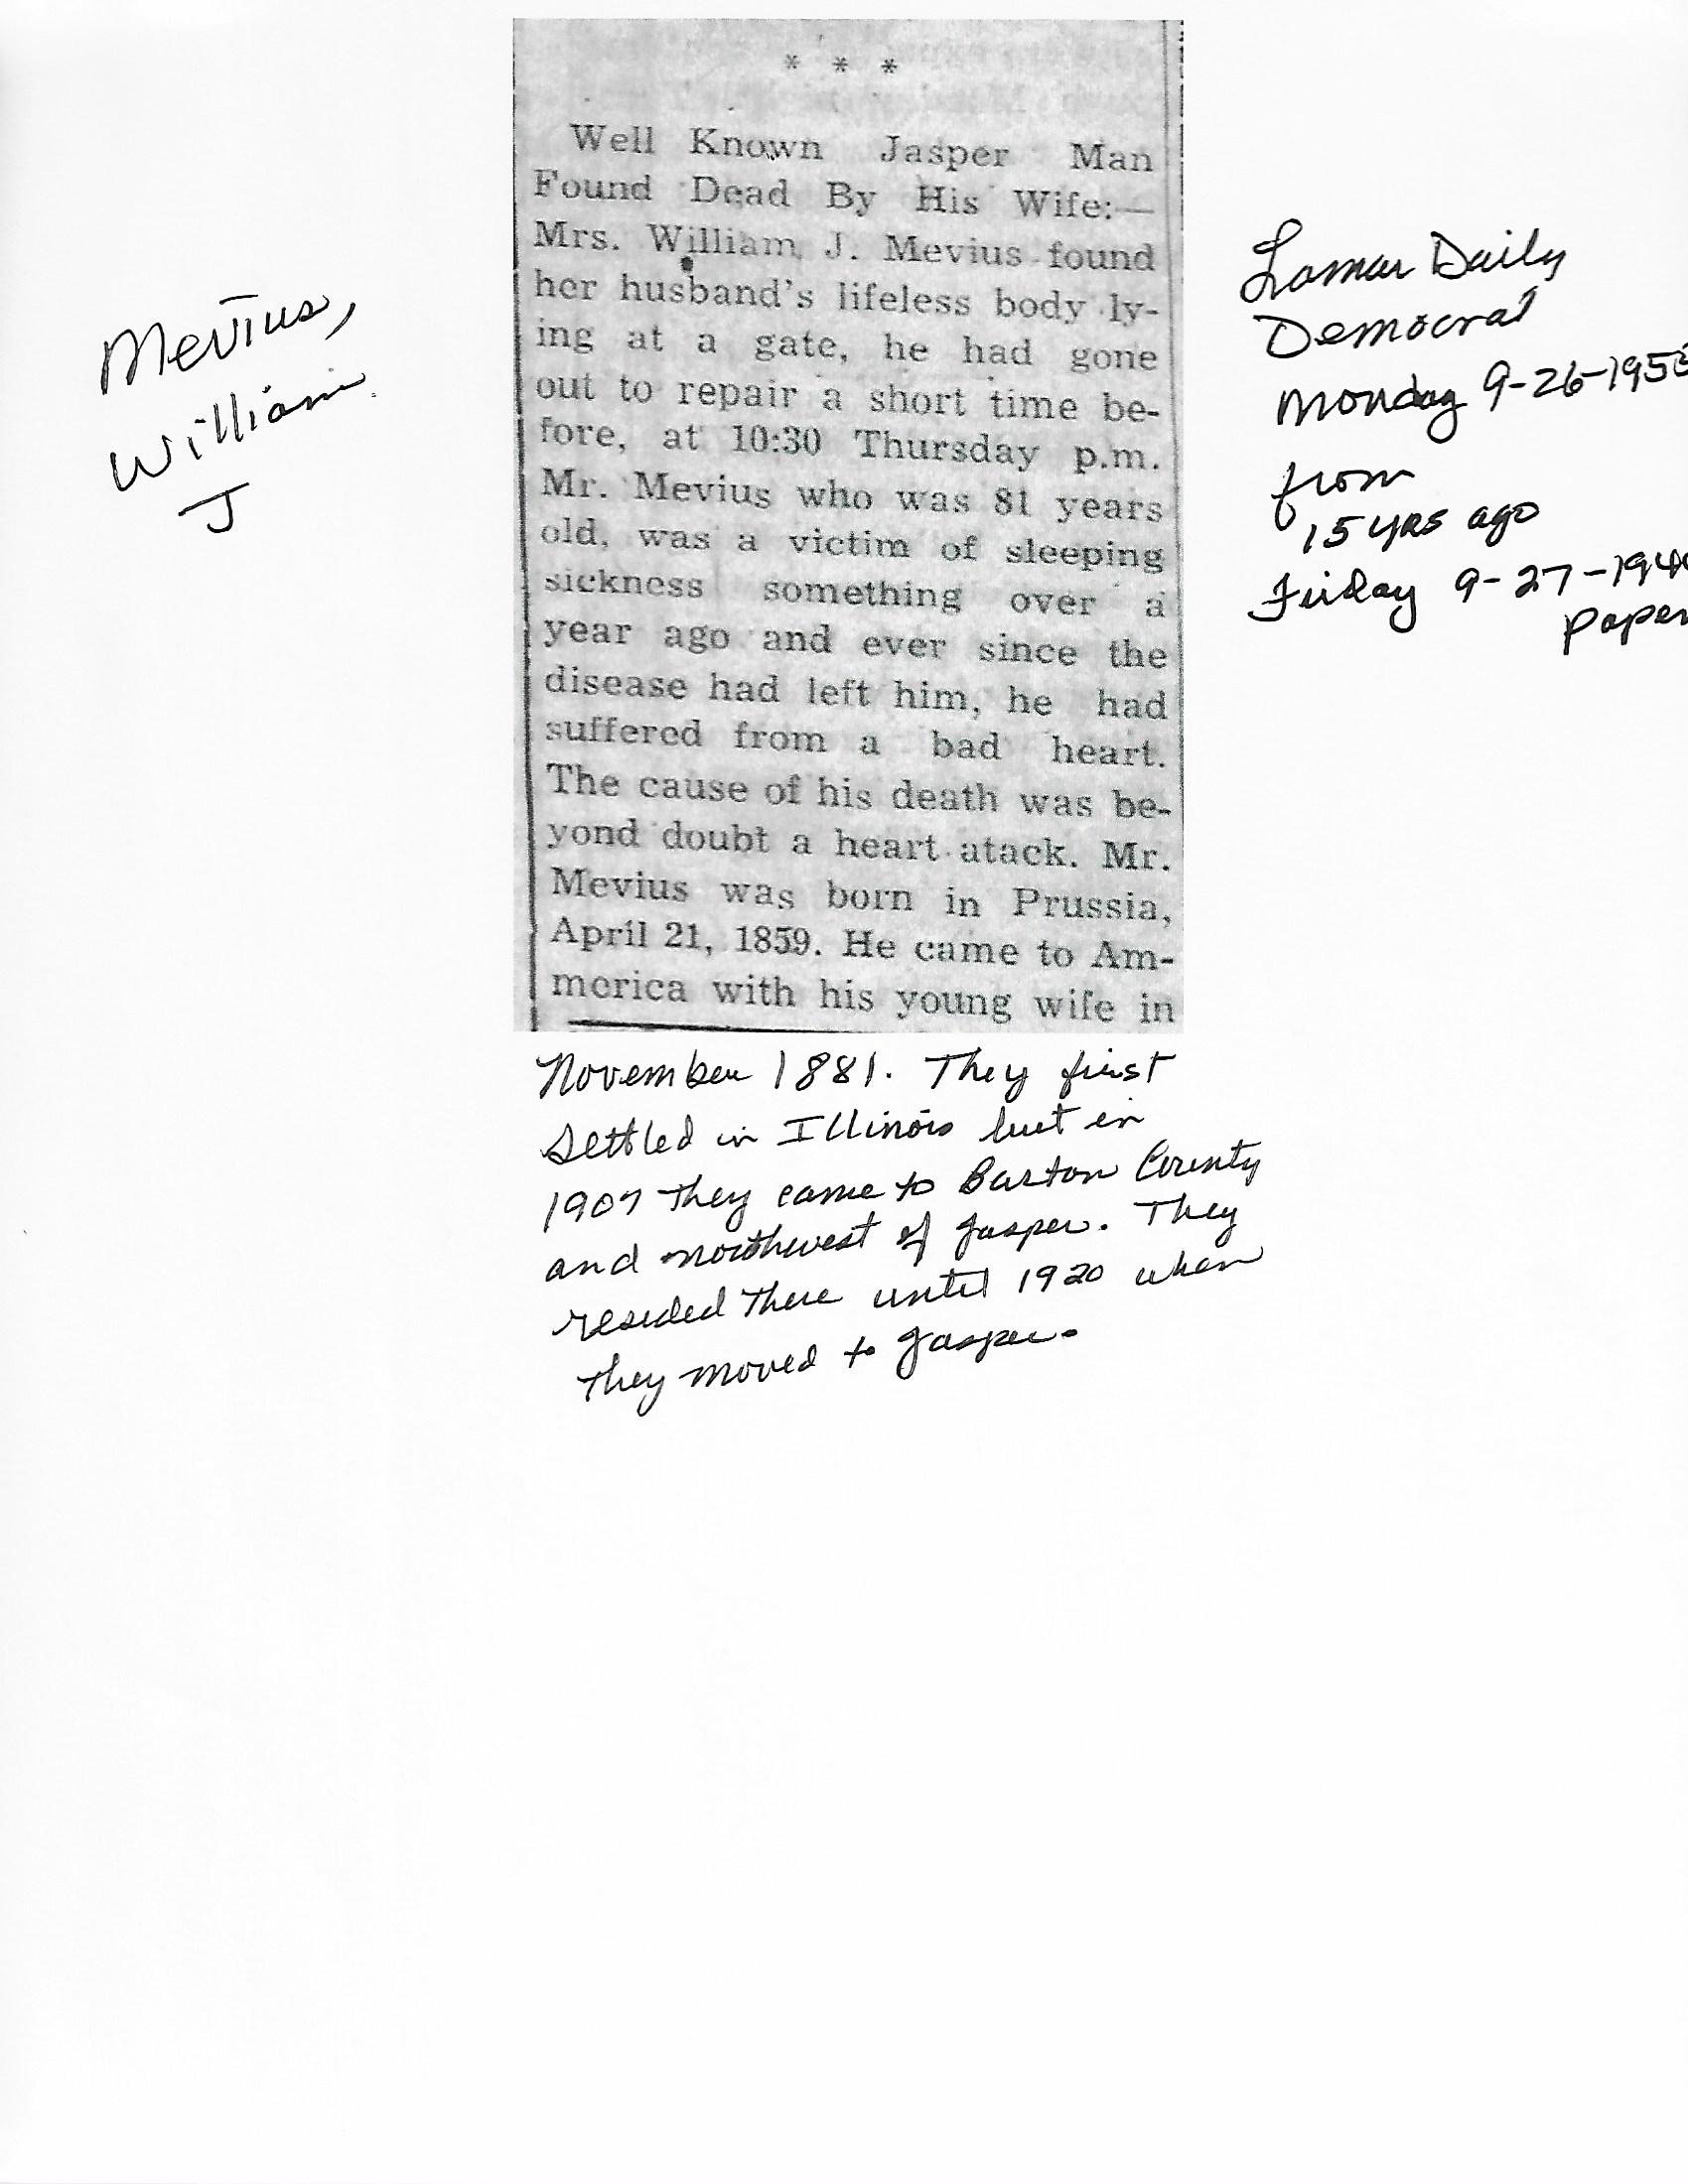 * * *
Well Known Jasper Man
Found Dead By His Wife:—
Mrs. William J. Mevius found
her husband's lifeless body ly-
ing at a gate, he had gone
out to repair a short time be-
fore, at 10:30 Thursday p.m.
Mr. Mevius who was 81 years
old, was a victim of sleeping
sickness something over a
year ago and ever since the
disease had left him, he had
suffered from a bad heart.
The cause of his death was be-
yond doubt a heart atack. Mr.
Mevius was born in Prussia,
April 21, 1859. He came to Am-
merica with his young wife in
November 1881. They first
settled in Illinois but in
1907 they came to Barton County
and northwest of Jasper. They
resided there until 1920 when
they moved to Jasper.
Mevius,
William
J
Lamar Daily
Democrat
Monday 9-26-195
from
15 yrs ago
Friday 9-27-194
paper